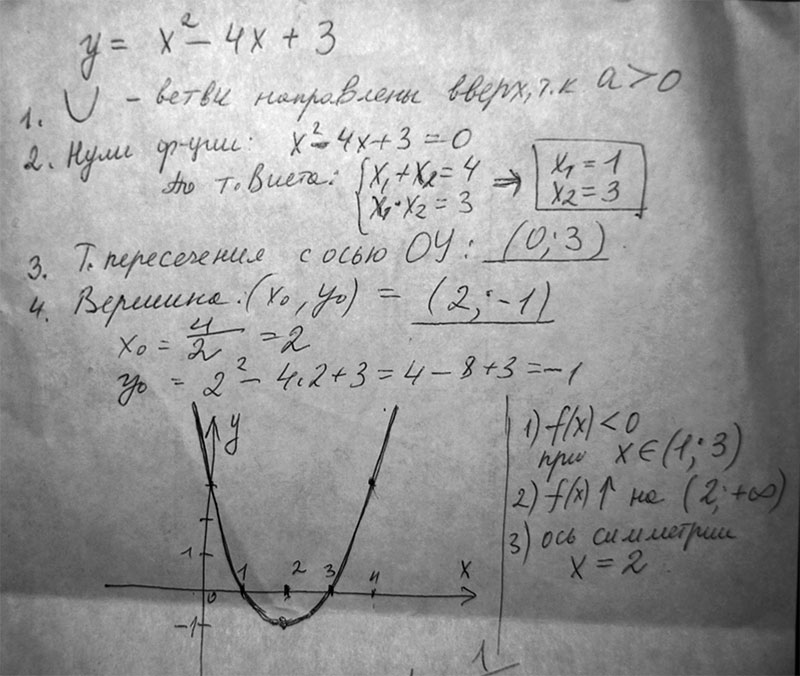 y = x² - 4x + 3
1. ∪ - ветви направлены вверх, т.к a > 0
2. Нули ф-ции: x² - 4x + 3 = 0
По т. Виета: { x₁ + x₂ = 4 ⇒ x₁ = 1
x₁ · x₂ = 3 x₂ = 3
3. Т. пересечения с осью OY: (0; 3)
4. Вершина: (x₀, y₀) = (2; -1)
x₀ = 4/2 = 2
y₀ = 2² - 4·2 + 3 = 4 - 8 + 3 = -1
y
1
0 1 2 3 4 x
-1
1) f(x) < 0
при x ∈ (1; 3)
2) f(x) ↑ на (2; +∞)
3) ось симметрии
x = 2
1